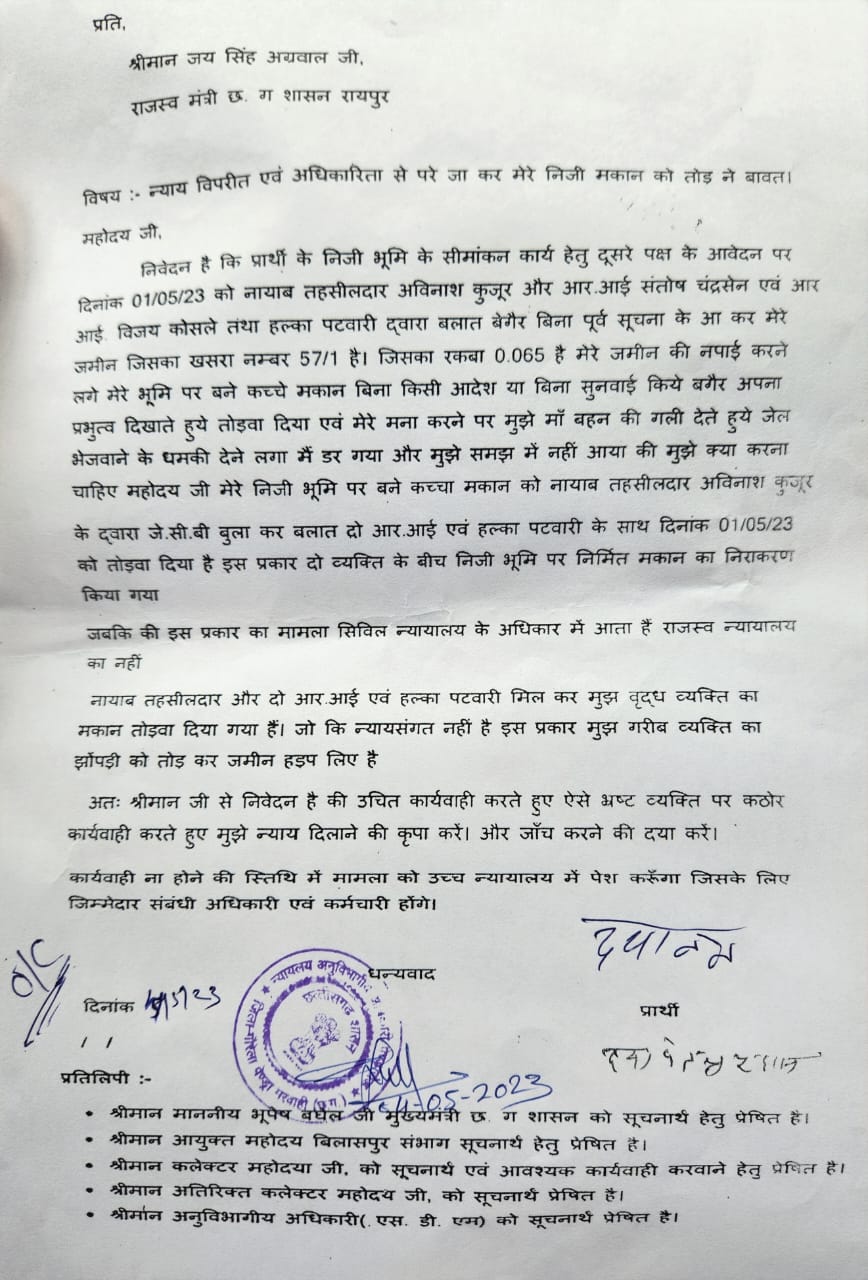 प्रति,
श्रीमान जय सिंह अग्रवाल जी,
राजस्व मंत्री छ. ग शासन रायपुर
विषय :- न्याय विपरीत एवं अधिकारिता से परे जा कर मेरे निजी मकान को तोड़ ने बावत।
महोदय जी,
निवेदन है कि प्रार्थी के निजी भूमि के सीमांकन कार्य हेतु दूसरे पक्ष के आवेदन पर
दिनांक 01/05/23 को नायाब तहसीलदार अविनाश कुजूर और आर.आई संतोष चंद्रसेन एवं आर
आई. विजय कोसले तंथा हल्का पटवारी द्वारा बलात बेगैर बिना पूर्व सूचना के आ कर मेरे
जमीन जिसका खसरा नम्बर 57/1 है। जिसका रकबा 0.065 है मेरे जमीन की नपाई करने
लगे मेरे भूमि पर बने कच्चे मकान बिना किसी आदेश या बिना सुनवाई किये बगैर अपना
प्रभुत्व दिखाते हुये तोड़वा दिया एवं मेरे मना करने पर मुझे माँ बहन की गली देते हुये जेल
भेजवाने के धमकी देने लगा मैं डर गया और मुझे समझ में नहीं आया की मुझे क्या करना
चाहिए महोदय जी मेरे निजी भूमि पर बने कच्चा मकान को नायाब तहसीलदार अविनाश कुजूर
के द्वारा जे.सी.बी बुला कर बलात दो आर.आई एवं हल्का पटवारी के साथ दिनांक 01/05/23
को तोड़वा दिया है इस प्रकार दो व्यक्ति के बीच निजी भूमि पर निर्मित मकान का निराकरण
किया गया
जबकि की इस प्रकार का मामला सिविल न्यायालय के अधिकार में आता हैं राजस्व न्यायालय
का नहीं
नायाब तहसीलदार और दो आर.आई एवं हल्का पटवारी मिल कर मुझ वृद्ध व्यक्ति का
मकान तोड़वा दिया गया हैं। जो कि न्यायसंगत नहीं है इस प्रकार मुझ गरीब व्यक्ति का
झोंपड़ी को तोड़ कर जमीन हड़प लिए है
अतः श्रीमान जी से निवेदन है की उचित कार्यवाही करते हुए ऐसे भ्रष्ट व्यक्ति पर कठोर
कार्यवाही करते हुए मुझे न्याय दिलाने की कृपा करें। और जाँच करने की दया करें।
कार्यवाही ना होने की स्तिथि में मामला को उच्च न्यायालय में पेश करूँगा जिसके लिए
जिम्मेदार संबंधी अधिकारी एवं कर्मचारी होंगे।
O/C
धन्यवाद
दिनांक 4/5/23
प्रार्थी
छत्तीसगढ़ शासन
04-05-2023
प्रतिलिपी :-
• श्रीमान माननीय भूपेष बघेल जी मुख्यमंत्री छ. ग शासन को सूचनार्थ हेतु प्रेषित है।
• श्रीमान आयुक्त महोदय बिलासपुर संभाग सूचनार्थ हेतु प्रेषित है।
• श्रीमान कलेक्टर महोदया जी, को सूचनार्थ एवं आवश्यक कार्यवाही करवाने हेतु प्रेषित है।
• श्रीमान अतिरिक्त कलेक्टर महोदय जी, को सूचनार्थ प्रेषित है।
• श्रीमान अनुविभागीय अधिकारी(. एस. डी. एम) को सूचनार्थ प्रेषित है।